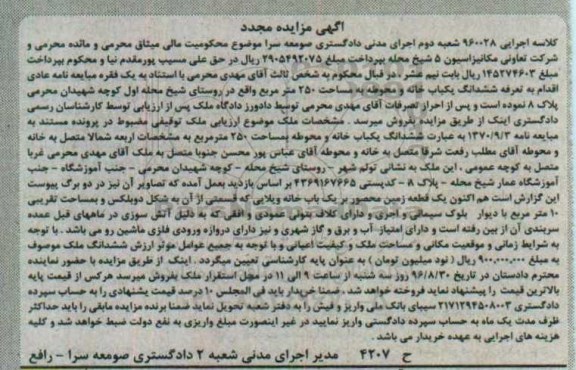 آگهی مزایده مجدد
کلاسه اجرایی ۹۶۰۰۲۸ شعبه دوم اجرای مدنی دادگستری صومعه سرا موضوع محکومیت مالی میثاق محرمی و مائده محرمی و
شرکت تعاونی مکانیزاسیون ۵ شیخ محله بپرداخت مبلغ ۲۹۰۵۴۹۲۰۷۵ ریال در حق علی مسیب پورمقدم نیا و محکوم بپرداخت
مبلغ ۱۴۵۲۷۴۶۰۳ ریال بابت نیم عشر ، در قبال محکوم به شخص ثالث آقای مهدی محرمی با استناد به یک فقره مبایعه نامه عادی
اقدام به تعرفه ششدانگ یکباب خانه و محوطه بمساحت ۲۵۰ متر مربع واقع در روستای شیخ محله اول کوچه شهیدان محرمی
پلاک ۸ نموده است و پس از احراز تصرفات آقای مهدی محرمی توسط دادورز دادگاه ملک پس از ارزیابی توسط کارشناسان رسمی
دادگستری اینک از طریق مزایده بفروش میرسد . مشخصات ملک موضوع ارزیابی ملک توقیفی مضبوط در پرونده مستند به
مبایعه نامه ۱۳۷۰/۹/۳ به عبارت ششدانگ یکباب خانه و محوطه بمساحت ۲۵۰ مترمربع به مشخصات اربعه شمالا متصل به خانه
و محوطه آقای مطلب رفعت شرقا متصل به خانه و محوطه آقای عباس پور محسن جنوبا متصل به ملک آقای مهدی محرمی غربا
متصل به کوچه عمومی . این ملک به نشانی تولم شهر - روستای شیخ محله - کوچه شهیدان محرمی - جنب آموزشگاه - جنب
آموزشگاه عمار شیخ محله - پلاک ۸ - کدپستی ۴۳۶۹۱۶۷۶۶۵ بر اساس بازدید بعمل آمده که تصاویر آن نیز در دو برگ پیوست
این گزارش است هم اکنون یک قطعه زمین محصور بر یک باب خانه ویلایی که قسمتی از آن به شکل دوبلکس و بمساحت تقریبی
۱۰ متر مربع با دیوار بلوک سیمانی و آجری و دارای کلاف بتونی عمودی و افقی که به دلیل آتش سوزی در ماههای قبل عمده
سربندی آن از بین رفته است و دارای امتیاز آب و برق و گاز شهری و نیز دارای دروازه ورودی فلزی ماشین رو می باشد . با توجه
به شرایط زمانی و موقعیت مکانی و مساحت ملک و کیفیت اعیانی و با توجه به جمیع عوامل موثر ارزش ششدانگ ملک موصوف
به مبلغ ۹۰۰,۰۰۰,۰۰۰ ریال (نود میلیون تومان ) به عنوان پایه کارشناسی تعیین میگردد . اینک از طریق مزایده با حضور نماینده
محترم دادستان در تاریخ ۹۶/۸/۳۰ روز سه شنبه از ساعت ۹ الی ۱۱ در محل استقرار ملک بفروش میرسد هرکس از قیمت پایه
بالاترین قیمت را پیشنهاد نماید فروخته خواهد شد . ضمنا خریدار باید فی المجلس ۱۰ درصد قیمت پیشنهادی را به حساب سپرده
دادگستری ۲۱۷۱۲۹۴۵۰۸۰۰۳ سیبای بانک ملی واریز و فیش را به دفتر شعبه تحویل نماید ضمنا برنده مزایده مابقی را باید حداکثر
ظرف مدت یک ماه به حساب سپرده دادگستری واریز نمایید در غیر اینصورت مبلغ واریزی به نفع دولت ضبط خواهد شد و کلیه
هزینه های اجرایی به عهده خریدار می باشد .
ح ۴۲۰۷ مدیر اجرای مدنی شعبه ۲ دادگستری صومعه سرا - رافع